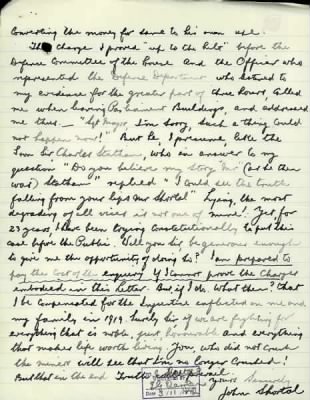 Converting the money for same to his own use.
This charge I proved "up to the hilt" before the
Defence Committee of the House and the Officer who
represented the Defence Department who listened to
my evidence for the greater part of three hours, called
me when leaving Parliament Buildings, and addressed
me thus. "Sgt Major I'm sorry, such a thing could
not happen now!" But he, I presume, like the
Sir Charles Statham, who in answer to my
question "Do you believe my story, Mr (as he then
was) Statham" replied "I could see the truth
falling from your lips Mr Shortal" Lying, the most
degrading of all vices is not one of mine! Yet, for
23 years, I have been trying Constitutionally to put this
case before the Public. Will you Sir be generous enough
to give me the opportunity of doing so? I am prepared to
pay the Cost of the enquiry if I cannot prove the Charges
embodied in this letter. But, if I do. What then? That
I be Compensated for the Injustice inflicted on me and
my family in 1919. Surely Sir if we are fighting for
everything that is noble, just, honourable and everything
that makes life worth living. You, who did not crush
the miners will see that I'm no longer Crushed!
But that in the end Truth
Yours Sincerely
John Shortal